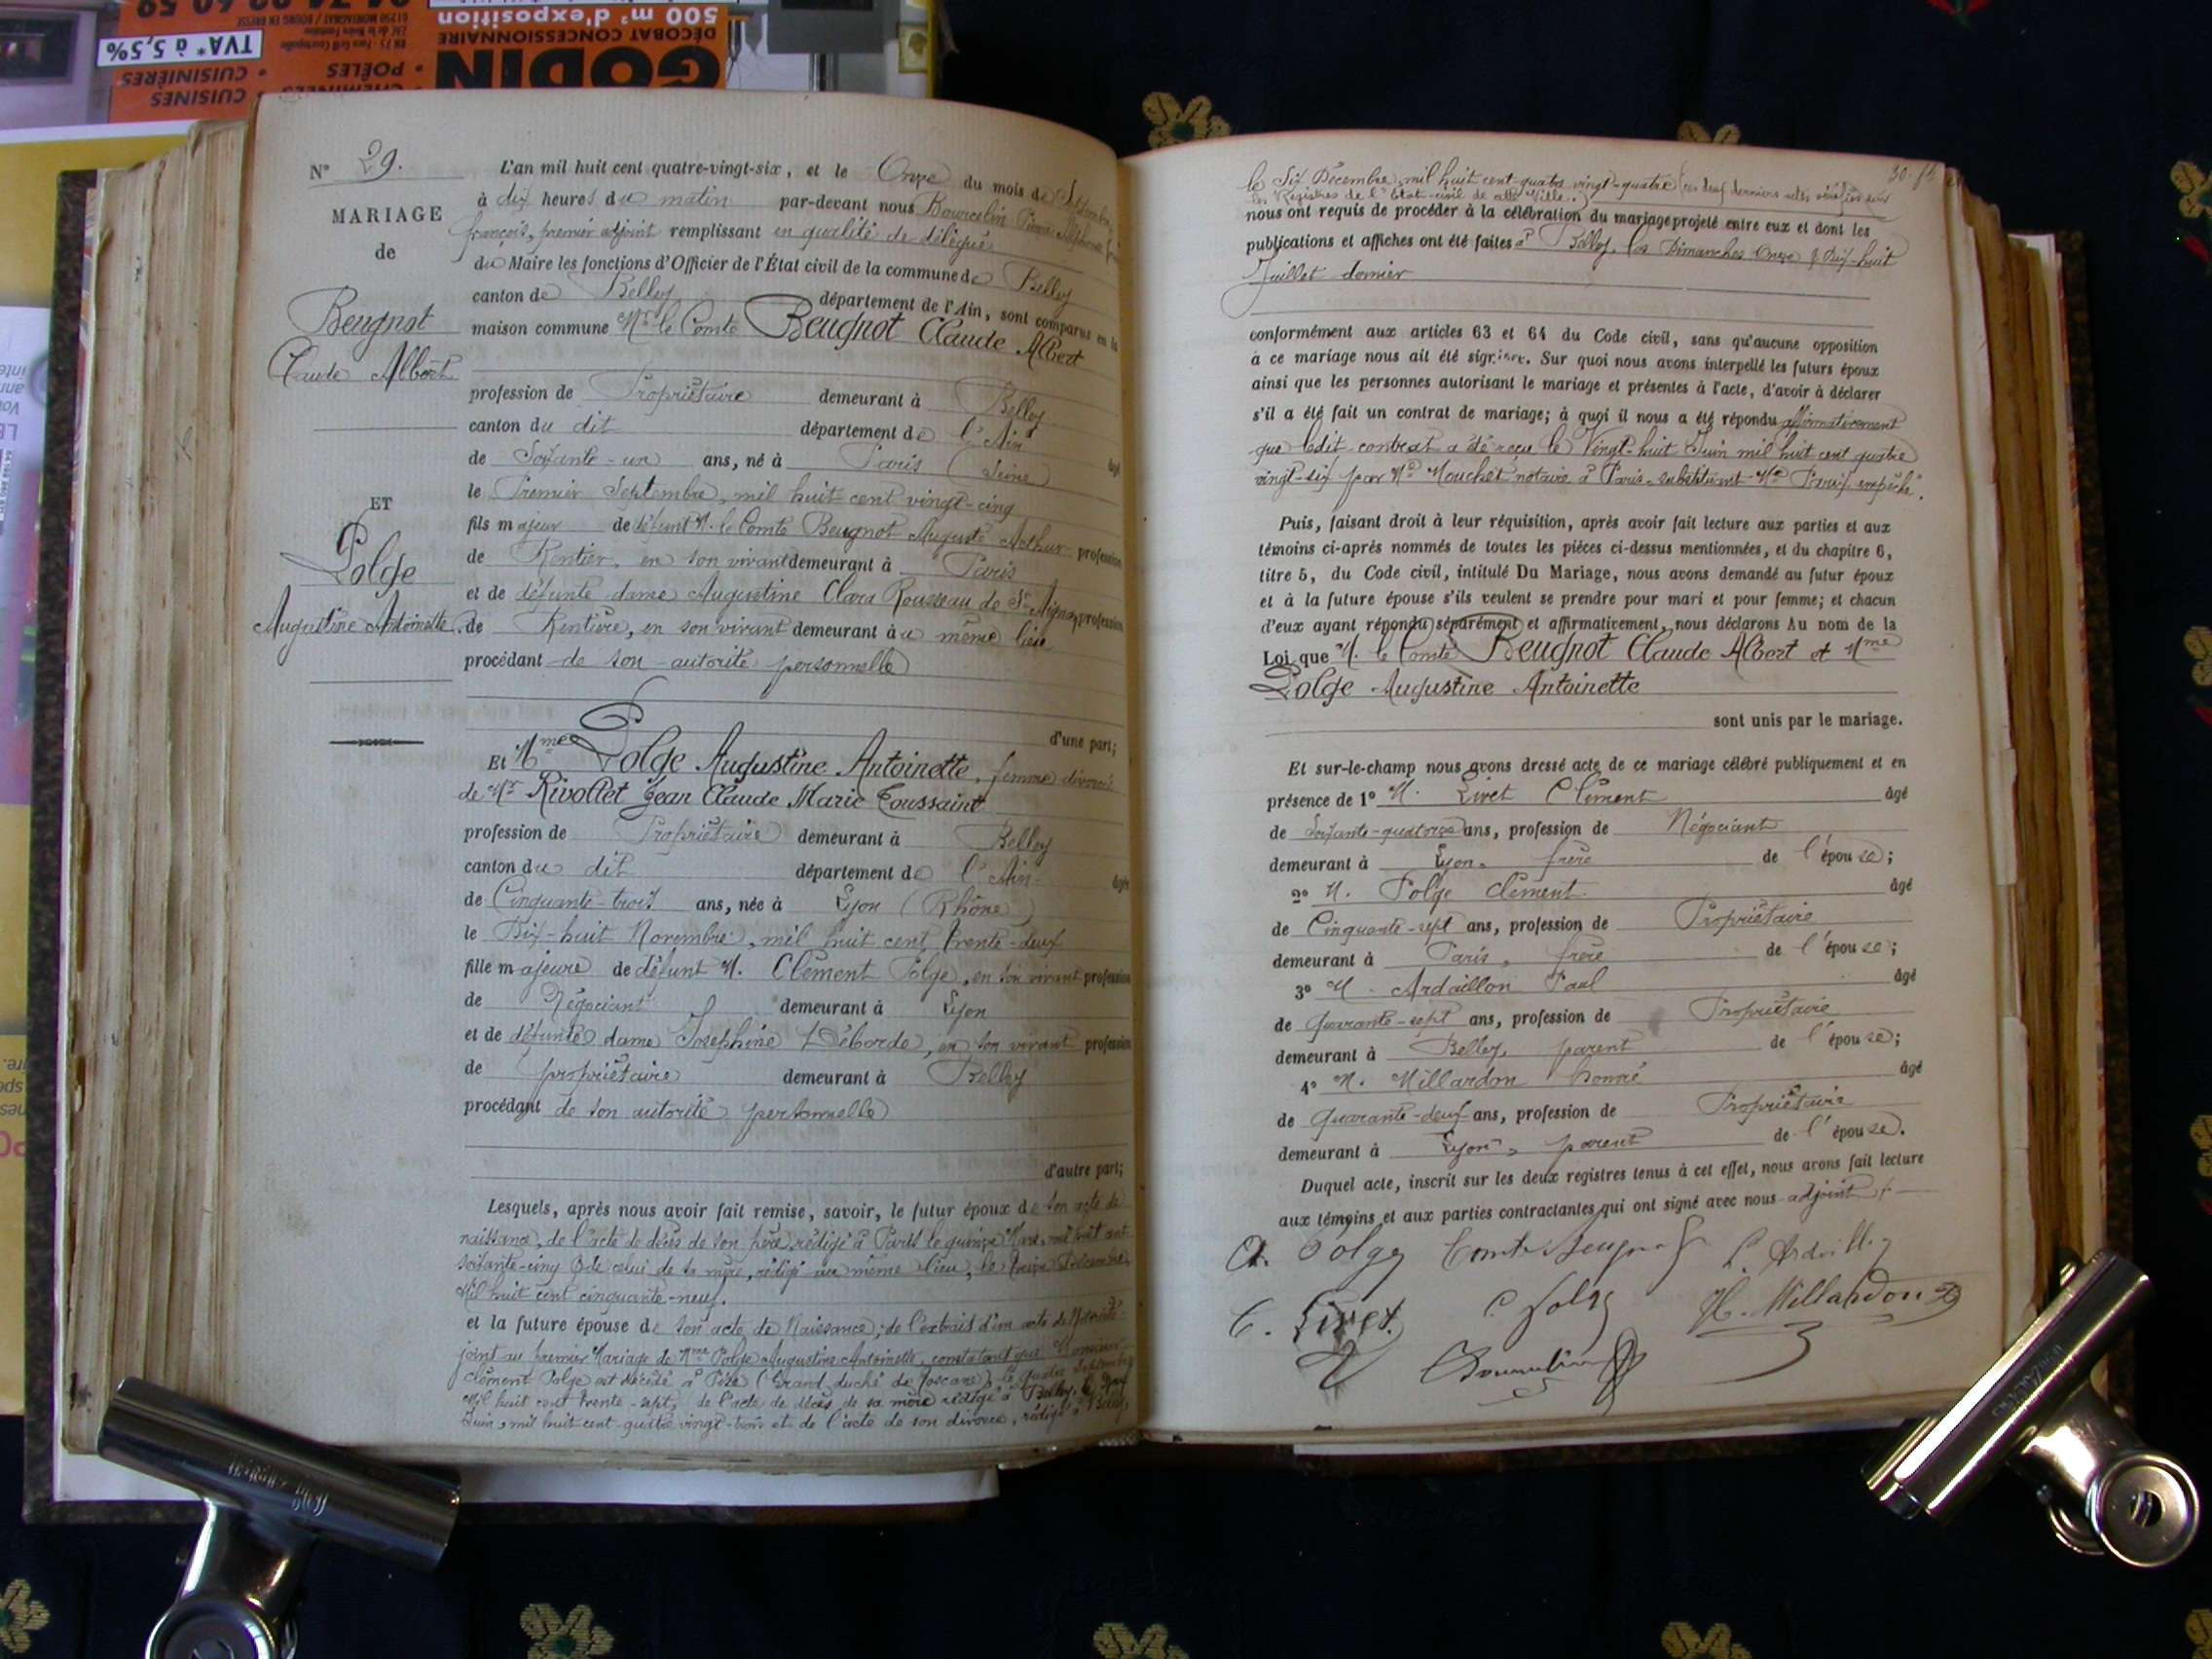 500 m² d'exposition
DÉCOBAT CONCESSIONNAIRE
GODIN
TVA* à 5,5%
• POÊLES
• CUISINIÈRES
• CUISINES
N° 29.
MARIAGE
de
Beugnot
Claude Albert
ET
Polge
Augustine Antoinette.
L'an mil huit cent quatre-vingt-six, et le Onze du mois de Septembre
à dix heures du matin par-devant nous Bourcelin Pierre
françois, premier adjoint remplissant en qualité de délégué
du Maire les fonctions d'Officier de l'État civil de la commune de Belley
canton de Belley département de l'Ain, sont comparus en la
maison commune Mr le Comte Beugnot Claude Albert
profession de Propriétaire demeurant à Belley
canton du dit département de l'Ain âgé
de Soixante-un ans, né à Paris (Seine)
le Premier Septembre, mil huit cent vingt-cinq
fils majeur de défunt M. le Comte Beugnot Auguste Arthur profession
de Rentier, en son vivant demeurant à Paris
et de défunte dame Augustine Clara Rousseau de St Aignan profession
de Rentière, en son vivant demeurant au même lieu
procédant de son autorité personnelle
d'une part;
Et Mme Polge Augustine Antoinette, femme divorcée
de Mr Rivollet Jean Claude Marie Toussaint
profession de Propriétaire demeurant à Belley
canton du dit département de l'Ain âgée
de Cinquante-trois ans, née à Lyon (Rhône)
le Dix-huit Novembre, mil huit cent trente-deux
fille majeure de défunt M. Clément Polge, en son vivant profession
de Négociant demeurant à Lyon
et de défunte dame Joséphine Déborde, en son vivant profession
de propriétaire demeurant à Belley
procédant de son autorité personnelle
d'autre part;
Lesquels, après nous avoir fait remise, savoir, le futur époux de son acte de
naissance, de l'acte de décès de son père, rédigé à Paris le quinze Mars, mil huit cent
soixante-cinq & de celui de sa mère, rédigé au même lieu, le Décembre,
Mil huit cent cinquante-neuf.
et la future épouse de son acte de Naissance; de l'extrait d'un acte de Notoriété
joint au premier Mariage de Mme Polge Augustine Antoinette, constatant que Monsieur
Clément Polge est décédé à Pise (Grand duché de Toscane) le quatre Septembre
Mil huit cent trente-sept, de l'acte de décès de sa mère rédigé à Belley, le
Juin, mil huit cent quatre vingt-trois et de l'acte de son divorce, rédigé à Belley,
30.
le Six Décembre, mil huit cent quatre vingt-quatre (ces deux derniers actes vérifiés sur
les Registres de l'Etat-civil de cette Ville.)
nous ont requis de procéder à la célébration du mariage projeté entre eux et dont les
publications et affiches ont été faites à Belley, les Dimanches Onze & Dix-huit
Juillet dernier
conformément aux articles 63 et 64 du Code civil, sans qu'aucune opposition
à ce mariage nous ait été signifiée. Sur quoi nous avons interpellé les futurs époux
ainsi que les personnes autorisant le mariage et présentes à l'acte, d'avoir à déclarer
s'il a été fait un contrat de mariage; à quoi il nous a été répondu affirmativement
que ledit contrat a été reçu le Vingt-huit Juin mil huit cent quatre
vingt-six par Me Mouchet notaire à Paris, substituant Me empêché.
Puis, faisant droit à leur réquisition, après avoir fait lecture aux parties et aux
témoins ci-après nommés de toutes les pièces ci-dessus mentionnées, et du chapitre 6,
titre 5, du Code civil, intitulé Du Mariage, nous avons demandé au futur époux
et à la future épouse s'ils veulent se prendre pour mari et pour femme; et chacun
d'eux ayant répondu séparément et affirmativement, nous déclarons Au nom de la
Loi que M. le Comte Beugnot Claude Albert et Mme
Polge Augustine Antoinette
sont unis par le mariage.
Et sur-le-champ nous avons dressé acte de ce mariage célébré publiquement et en
présence de 1° M. Livet Clément âgé
de Soixante-quatorze ans, profession de Négociant
demeurant à Lyon, frère de l'épouse;
2° M. Polge Clément âgé
de Cinquante-sept ans, profession de Propriétaire
demeurant à Paris, frère de l'épouse;
3° M. Ardaillon Paul âgé
de Quarante-sept ans, profession de Propriétaire
demeurant à Belley, parent de l'épouse;
4° M. Millardon Honoré âgé
de Quarante-deux ans, profession de Propriétaire
demeurant à Lyon, parent de l'épouse.
Duquel acte, inscrit sur les deux registres tenus à cet effet, nous avons fait lecture
aux témoins et aux parties contractantes qui ont signé avec nous adjoint
A. Polge Comte Beugnot P. Ardaillon
C. Livet C. Polge H. Millardon
Bourcelin